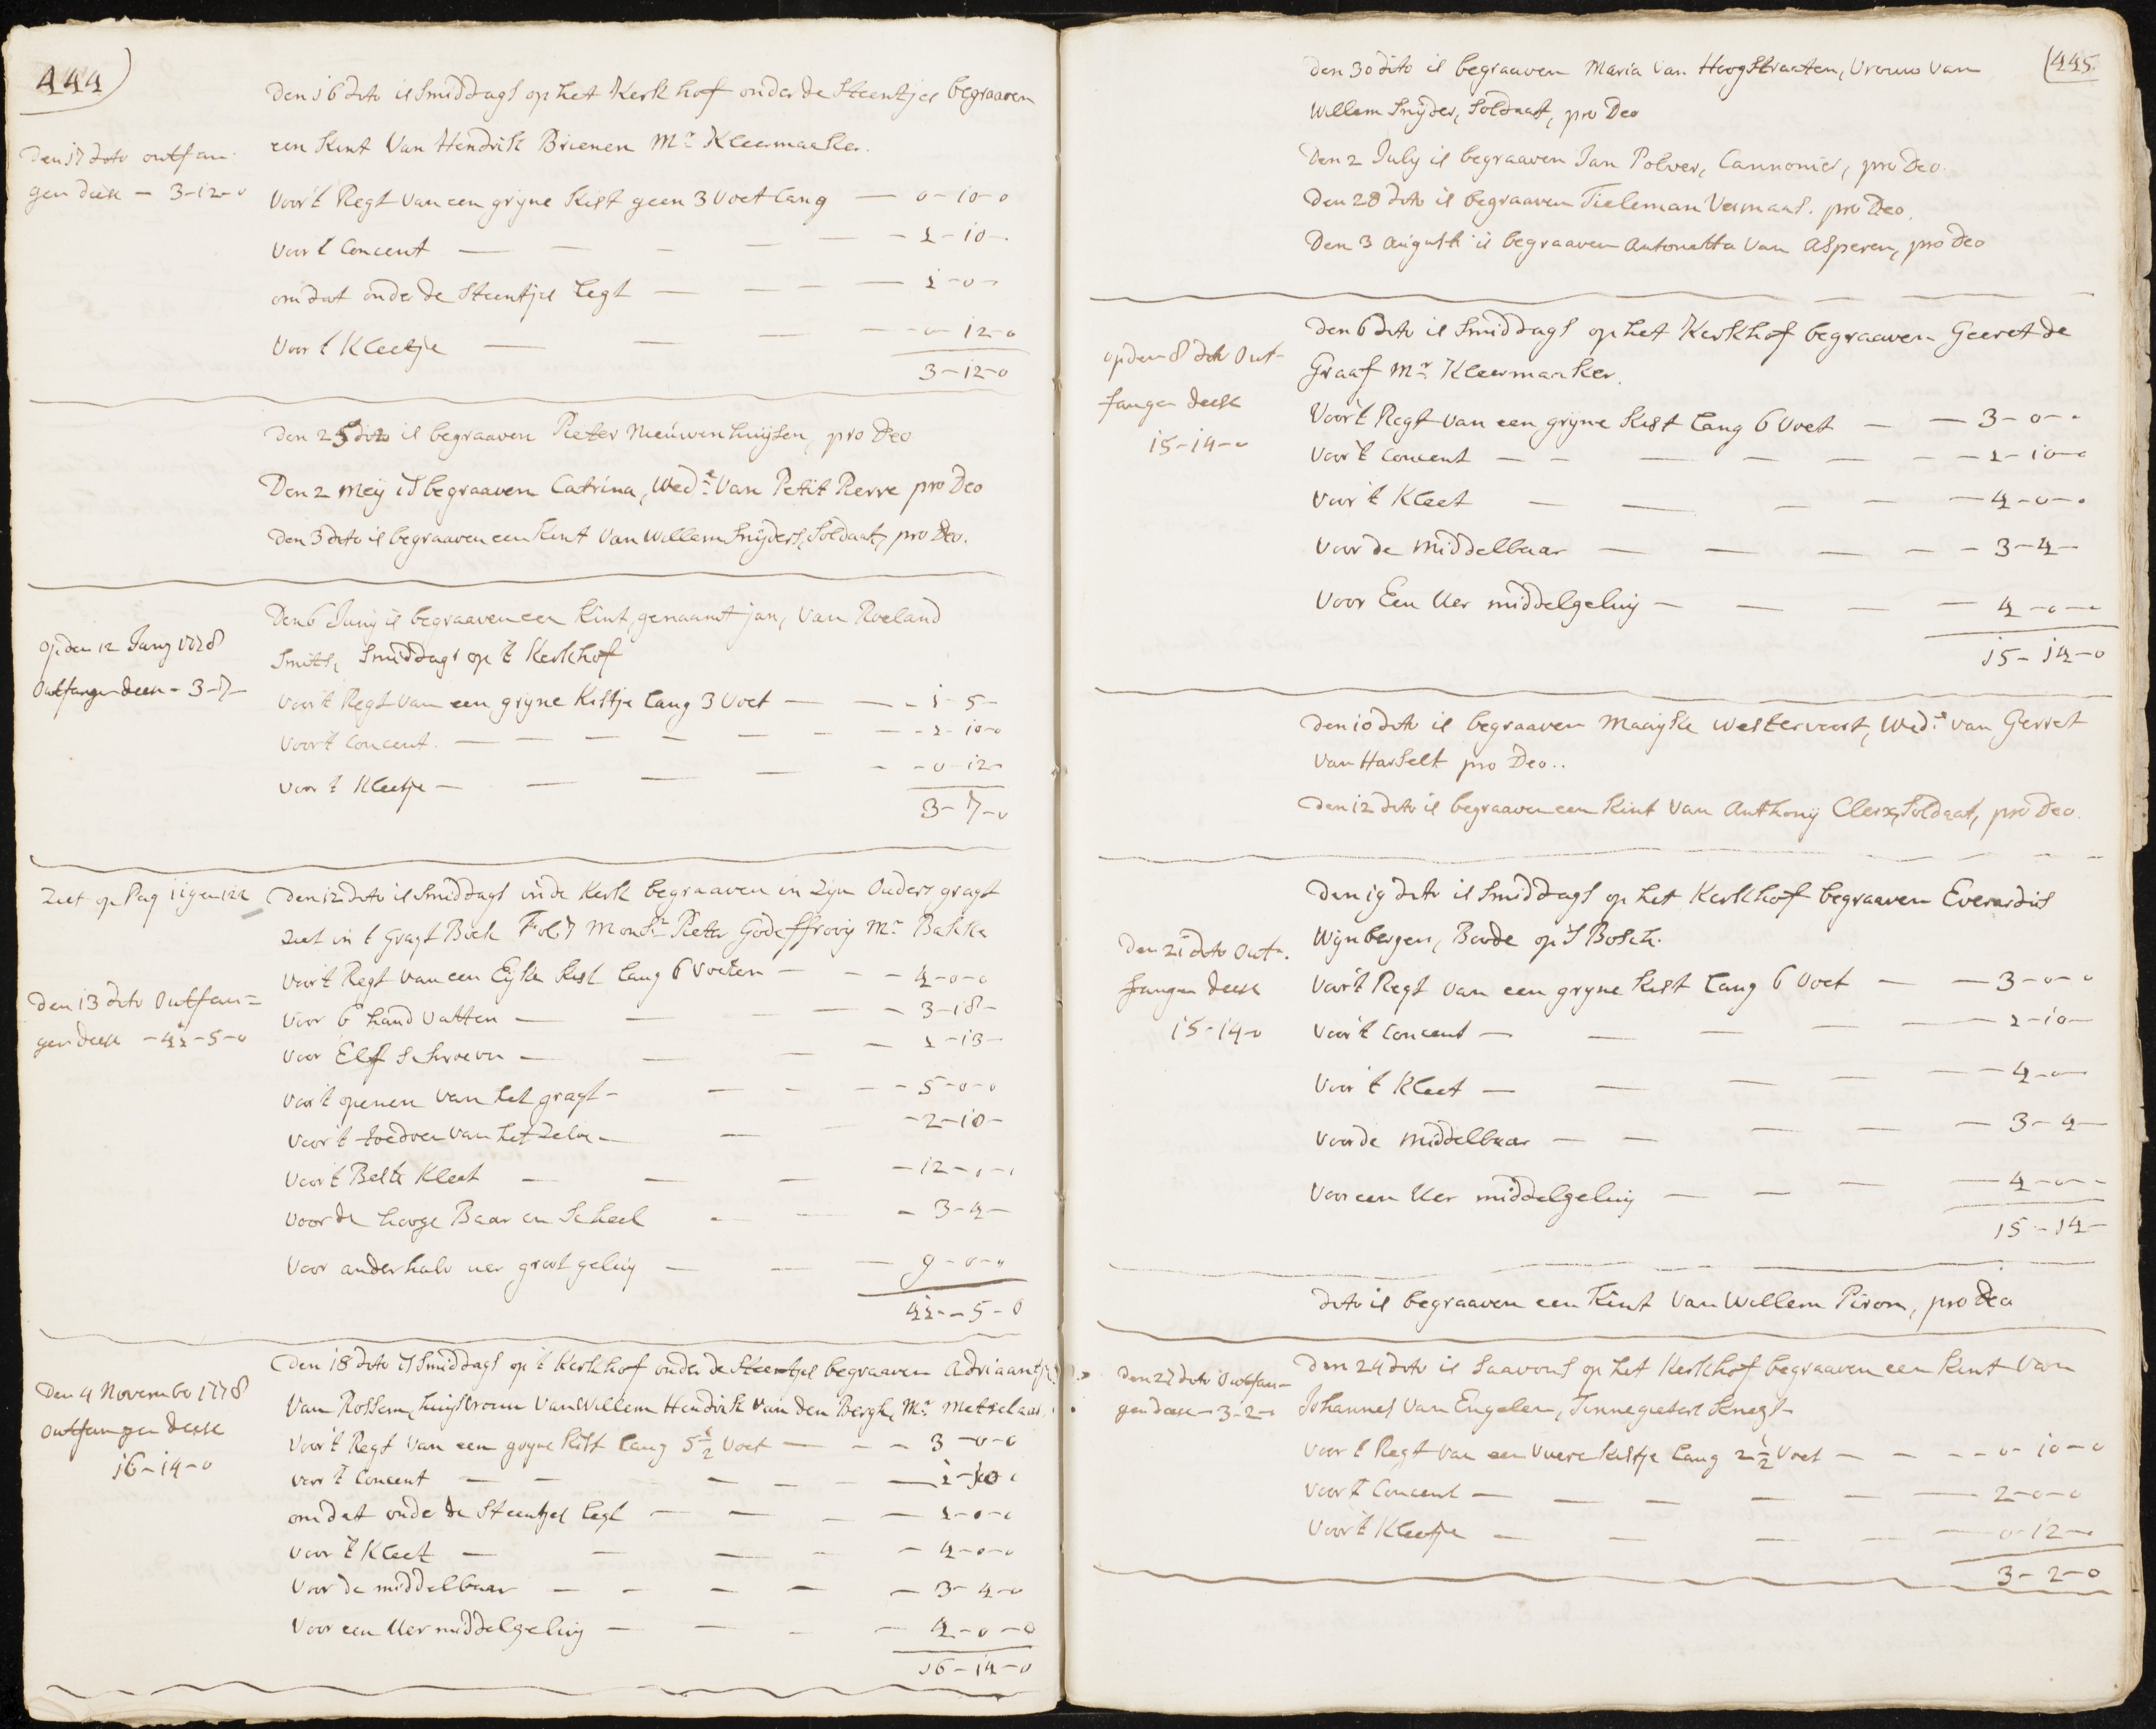 444
den 16 dito is Smiddags op het Kerk hof onder de Steentjes begraaven
een Kint Van Hendrik Brienen Mr Kleermaaker.
den 17 dito outfan-
gen deese — 3-12-0
Voor 't Regt van een gryne Kist geen 3 Voet lang — 0-10-0
Voor 't Concent — 1-10-
omdat onder de Steentjes legt — 1-0-
Voor 't Kleetje — 0-12-0
3-12-0
den 25 dito is begraaven Pieter Nieuwenhuijsen, pro Deo
Den 2 Meij is begraaven Catrina, Wed:e Van Petit Pierre pro Deo
den 3 dito is begraaven een Kint Van Willem Snijders, Soldaat, pro Deo.
Den 6 Junij is begraaven een Kint, genaamt jan, Van Roeland
Smits, Smiddags op 't Kerkhof
op den 12 Junij 1778
Outfangen deese - 3-7-
Voor 't Regt van een gryne Kistje lang 3 Voet — 1-5-
Voor 't Concent. — 1-10-0
Voor 't Kleetje — 0-12-
3-7-0
Ziet op Pag 11 en 122
Den 12 dito is Smiddags in de Kerk begraaven in Zijn Ouders gragt
Ziet in 't Gragt Boek Fol: 7 Monsr Pieter Godeffrooij Mr Bakke
Voor 't Regt van een Eijke Kist lang 6 Voeten — 4-0-0
den 13 dito Outfan=
gen deese — 41-5-0
Voor 6 hand vatten — 3-18-
Voor Elf Schroeven — 1-13-
Voor 't openen van het gragt — 5-0-0
Voor 't toedoen van het Zelve — 2-10-
Voor 't Beste Kleet — 12-0-0
Voor de hooge Baar en Scheel — 3-4-
Voor anderhalv uer groot geluij — 9-0-0
41-5-0
Den 18 dito is Smiddags op 't Kerkhof onder de Steentjes begraaven Adriaantje
Van Rossem, huijsvrouw Van Willem Hendrik Van den Bergh, Mr Metselaar.
Den 4 November 1778
Outfangen deese
16-14-0
Voor 't Regt Van een gryne Kist lang 5 1/2 Voet — 3-0-0
Voor 't Concent — 1-10-0
omdat onder de Steentjes legt — 1-0-0
Voor 't Kleet — 4-0-0
Voor de middelbaar — 3-4-0
Voor een Uer middelgeluij — 4-0-0
16-14-0
445
Den 30 dito is begraaven Maria Van Hoogstraaten, Vrouw Van
Willem Snijder, Soldaat, pro Deo
Den 2 July is begraaven Jan Polver, Cannonier, pro Deo.
Den 28 dito is begraaven Tieleman Vermaas. pro Deo.
Den 3 Augusti is begraaven Antonetta Van Asperen, pro Deo
den 6 dito is Smiddags op het Kerkhof begraaven Geeret de
Graaf Mr Kleermaaker.
op den 8 dito Out-
fangen deese
15-14-0
Voor 't Regt van een gryne Kist lang 6 Voet — 3-0-0
Voor 't Concent — 1-10-0
Voor 't Kleet — 4-0-0
Voor de middelbaar — 3-4-
Voor Een Uer middelgeluij — 4-0-0
15-14-0
Den 10 dito is begraaven Maaijke Westervoort, Wed:e van Gerret
Van Harselt pro Deo..
Den 12 dito is begraaven een Kint Van Anthonij Clerx, Soldaat, pro Deo.
Den 19 dito is Smiddags op het Kerkhof begraaven Everardis
Wijnbergen, Boode op 'S Bosch.
Den 21 dito Out-
fangen deese
15-14-0
Voor 't Regt van een gryne Kist lang 6 Voet — 3-0-0
Voor 't Concent — 1-10-
Voor 't Kleet — 4-0-
Voor de middelbaar — 3-4-
Voor een Uer middelgeluij — 4-0-0
15-14-
dito is begraaven een Kint Van Willem Piron, pro Deo
Den 24 dito is Saavons op het Kerkhof begraaven een Kint Van
Johannes Van Engelen, Tinnegieters Knegt
Den 27 dito Outfan-
gen deese — 3-2-0
Voor 't Regt Van een Vuere Kistje lang 2 1/2 Voet — 0-10-0
Voor 't Concent — 2-0-0
Voor 't Kleetje — 0-12-0
3-2-0